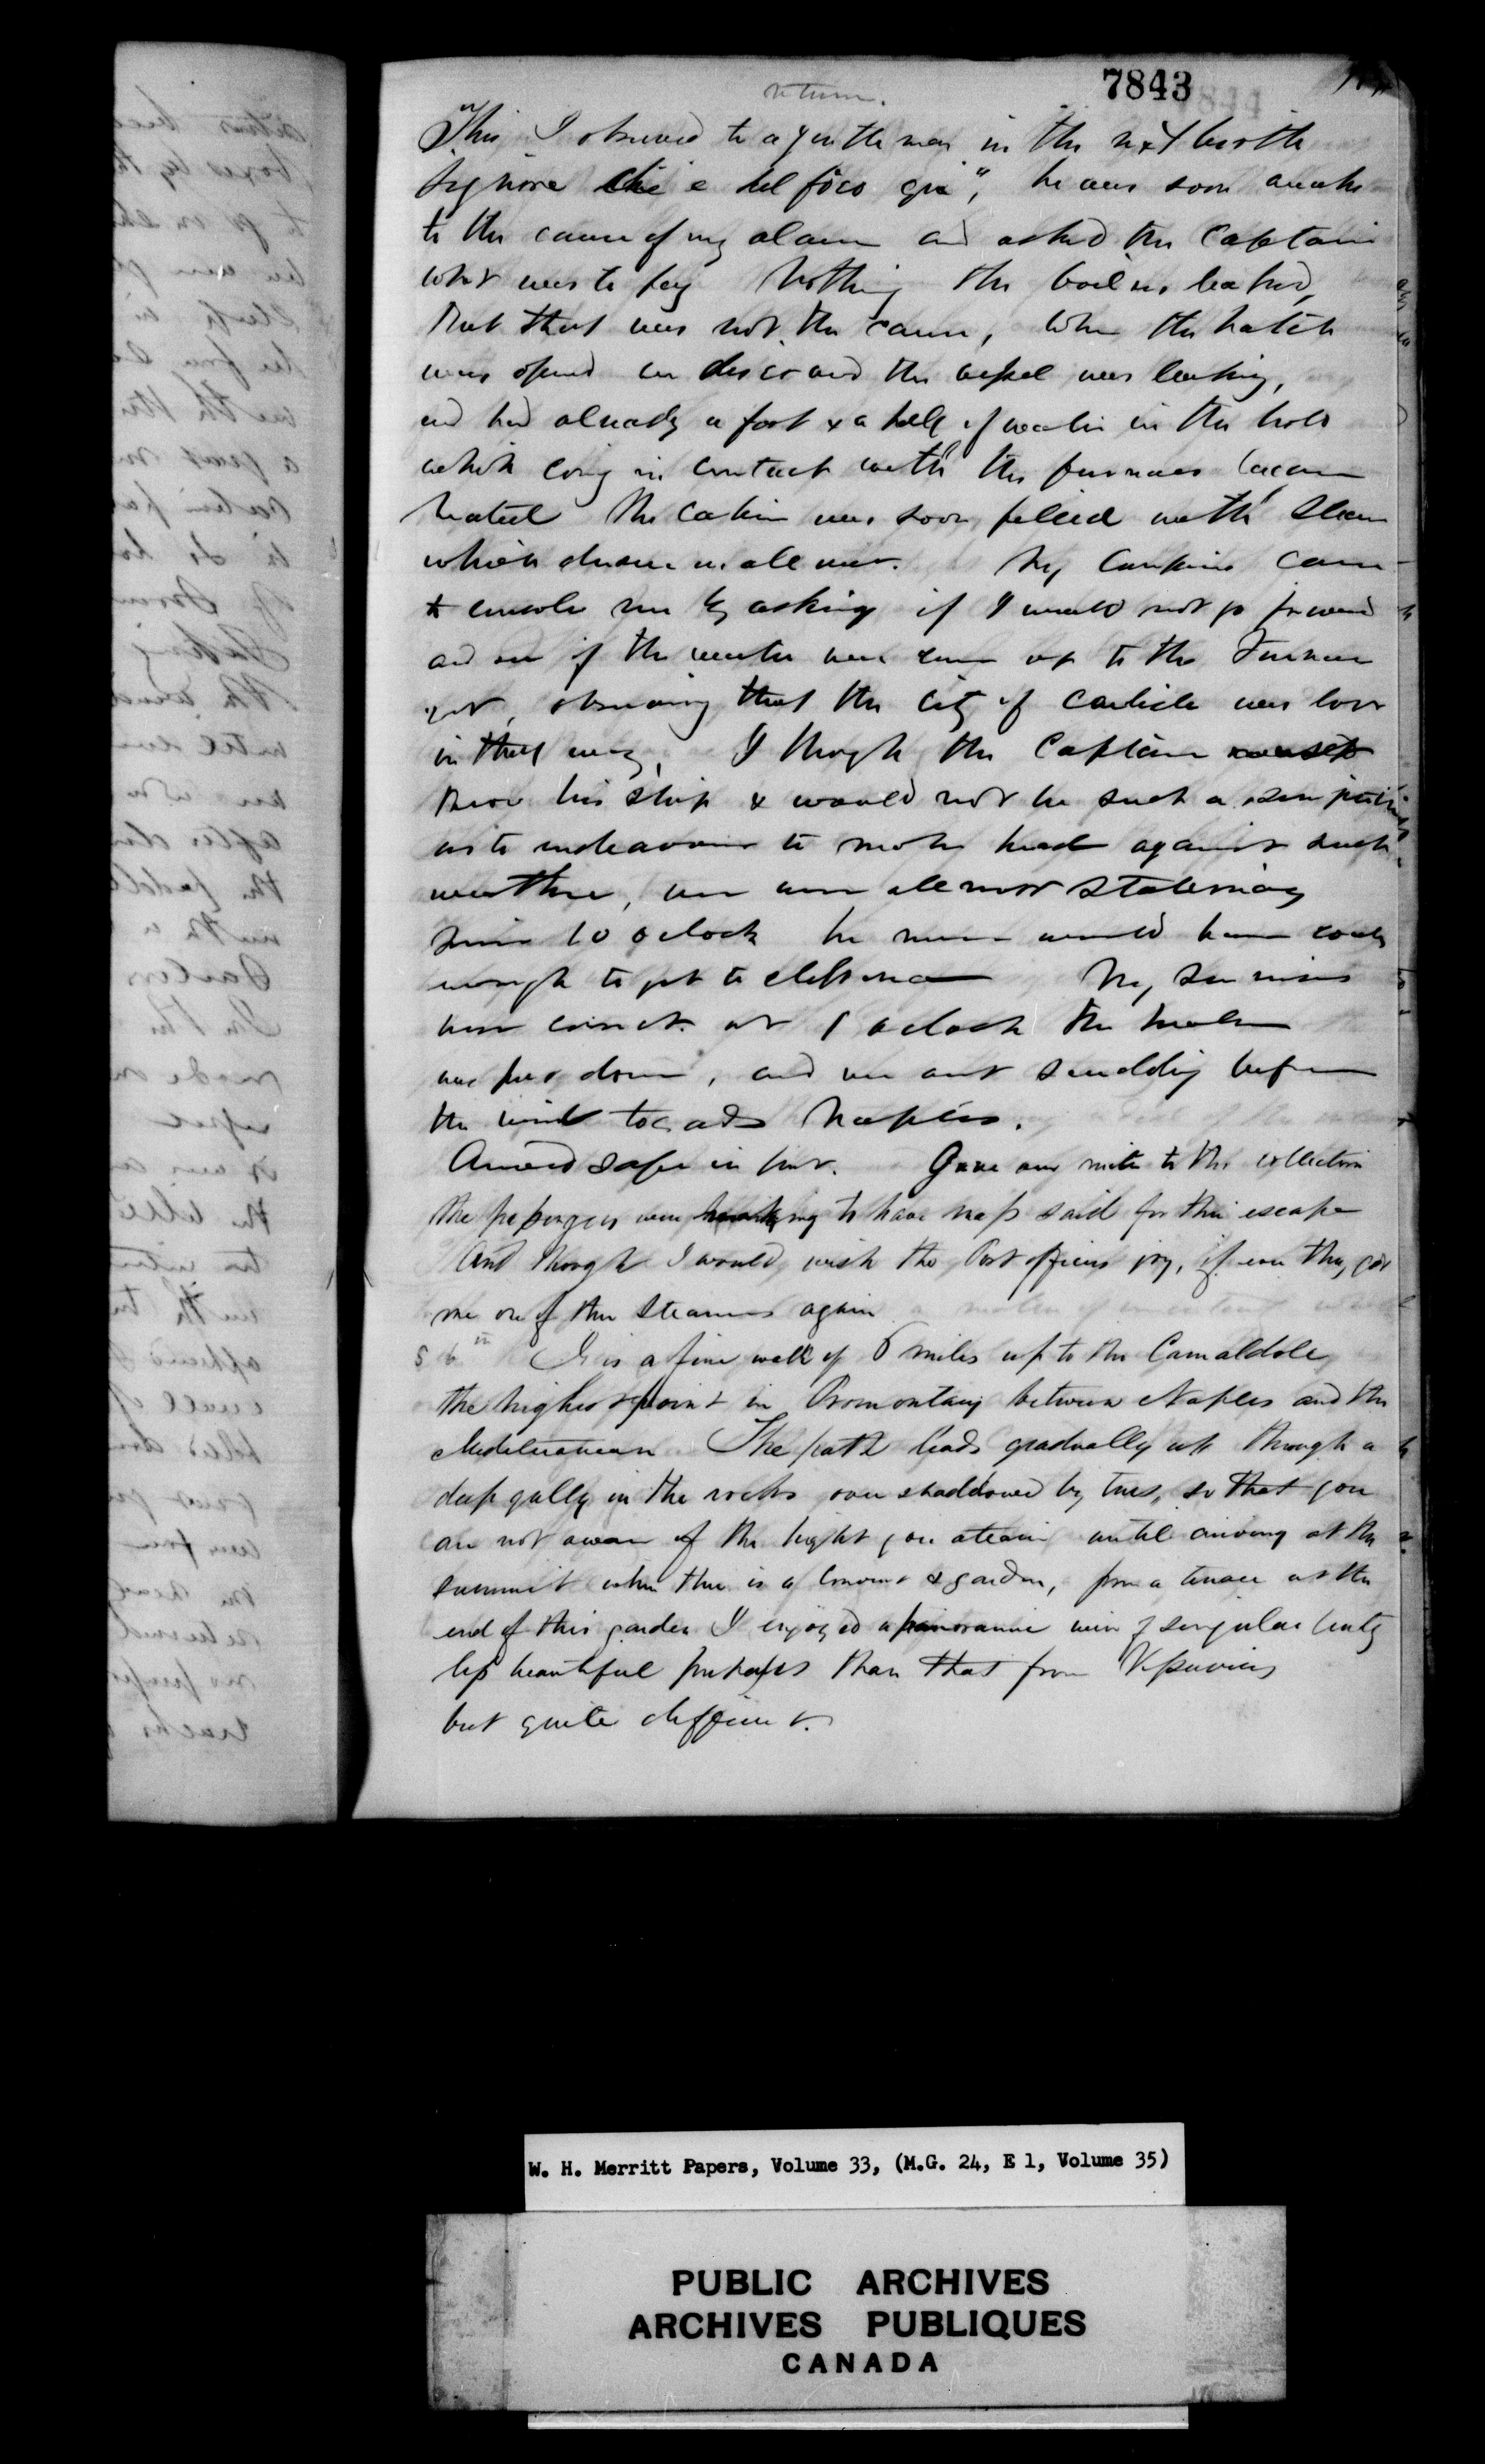 return.
7843
This I observed to a gentleman in the next berth
Signore che e del foco qui", he was soon awake
to the cause of my alarm and asked the Captain
what was to pay Nothing the boilers leaked,
But that was not the cause, when the hatch
was opened we discovered the vessel was leaking,
and had already a foot & a half of water in the hold
which coming in contact with the furnaces became
heated The Cabin was soon filled with Steam
which drove us all out. My Companion came
to console me by asking if I would not go forward
and see if the water was come up to the Furnace
yet, observing that the City of Carlisle was lost
in that way, I thought the Captain must
know his ship & would not be such a
as to endeavour to make head against such
weather, we were almost stationary
since 10 oclock he never would have coals
enough to get to Messina My surmises
were correct. at 1 oclock the helm
was put down, and we went scudding before
the wind towards Naples.
Arrived safe in port. Gave our mite to the collection
the passengers were making to have mass said for their escape
And thought I would wish the Post officers joy, if ever they got
me on of their Steamers again
It is a fine walk of 6 miles up to the Camaldole
the highest point in Promontary between Naples and the
Mediterranean The path leads gradually up through a
deep gully in the rocks over shaddowed by trees, so that you
are not aware of the hight you attain until arriving at the
summit when there is a Convent & garden, from a terrace at the
end of this garden I enjoyed a panoramic view of singular beauty
less beautiful perhaps than that from Vesuvius
but quite different.
W. H. Merritt Papers, Volume 33, (M.G. 24, E 1, Volume 35)
PUBLIC ARCHIVES
ARCHIVES PUBLIQUES
CANADA